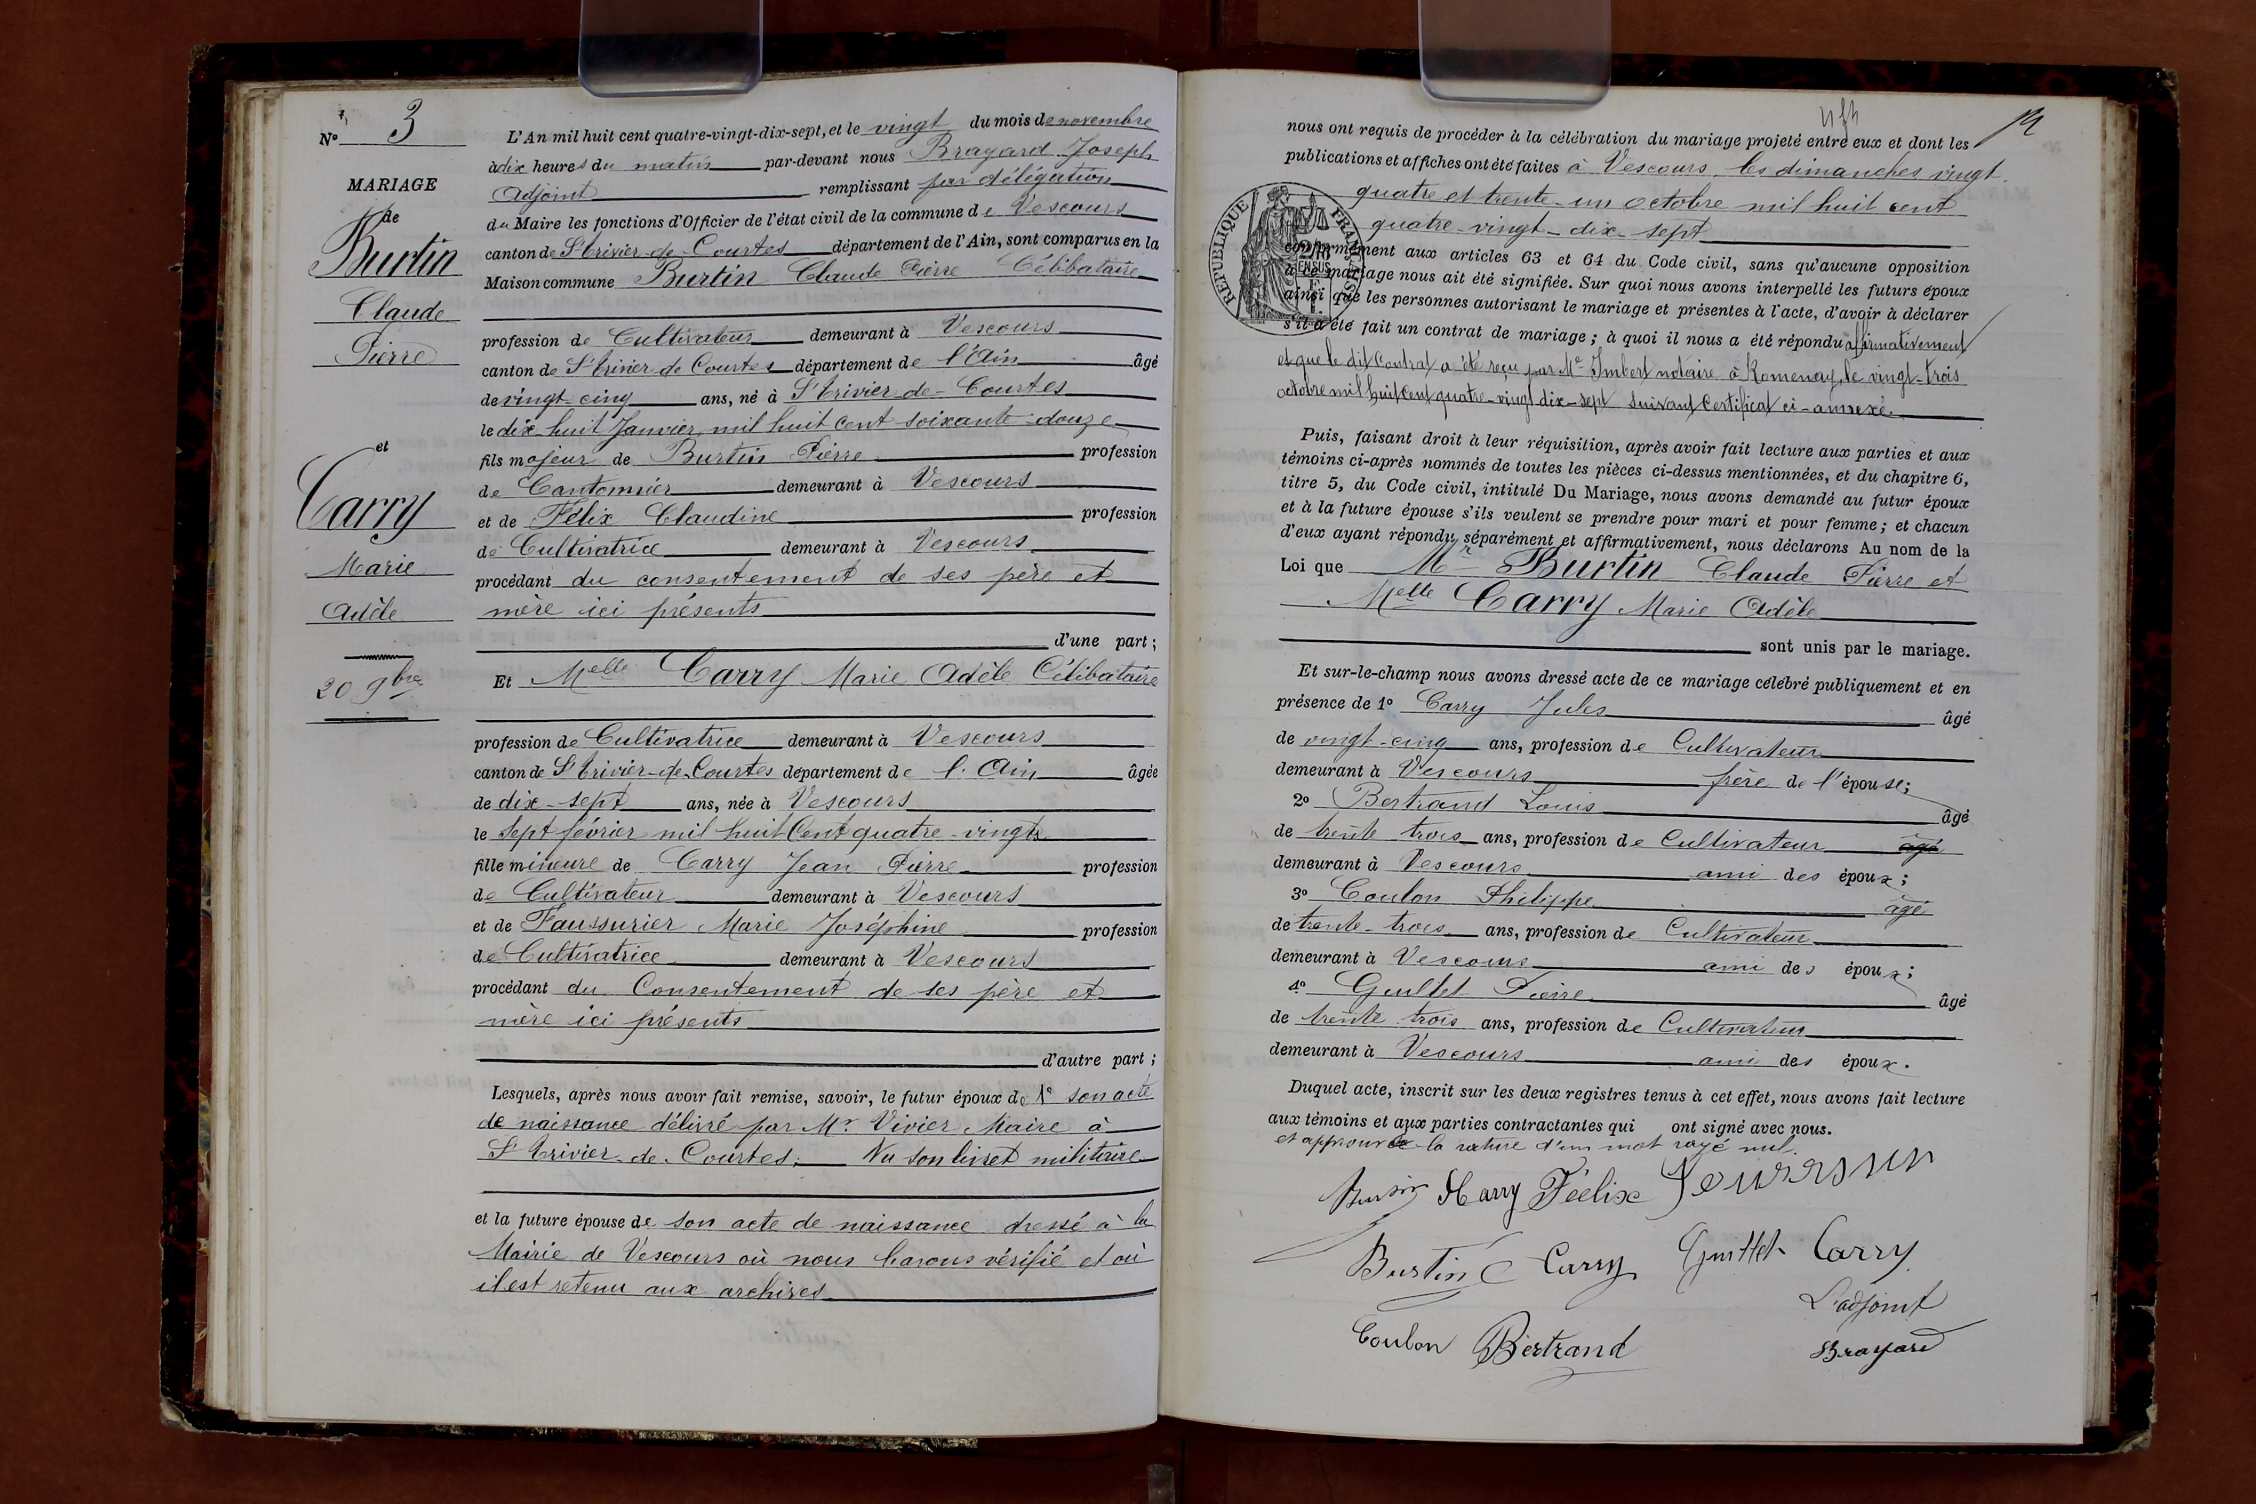 N° 3
MARIAGE
de
Burtin
Claude
Pierre
et
Carry
Marie
Adèle
20 9bre
L'An mil huit cent quatre-vingt-dix-sept, et le vingt du mois de novembre
à dix heures du matin par-devant nous Brayard Joseph
Adjoint remplissant par délégation
du Maire les fonctions d'Officier de l'état civil de la commune de Vescours
canton de St Trivier-de-Courtes département de l'Ain, sont comparus en la
Maison commune Burtin Claude Pierre Célibataire
profession de Cultivateur demeurant à Vescours
canton de St Trivier de Courtes département de l'Ain âgé
de vingt-cinq ans, né à St Trivier-de-Courtes
le dix-huit Janvier mil huit cent soixante-douze
fils majeur de Burtin Pierre profession
de Cantonnier demeurant à Vescours
et de Félix Claudine profession
de Cultivatrice demeurant à Vescours
procédant du consentement de ses père et
mère ici présents
d'une part ;
Et Melle Carry Marie Adèle Célibataire
profession de Cultivatrice demeurant à Vescours
canton de St Trivier-de-Courtes département de l'Ain âgée
de dix-sept ans, née à Vescours
le sept février mil huit Cent quatre-vingts
fille mineure de Carry Jean Pierre profession
de Cultivateur demeurant à Vescours
et de Faussurier Marie Joséphine profession
de Cultivatrice demeurant à Vescours
procédant du Consentement de ses père et
mère ici présents
d'autre part ;
Lesquels, après nous avoir fait remise, savoir, le futur époux de 1° son acte
de naissance délivré par Mr Vivier Maire à
St Trivier-de-Courtes. Vu son livret militaire
et la future épouse de son acte de naissance dressé à la
Mairie de Vescours où nous l'avons vérifié et où
il est retenu aux archives
nous ont requis de procéder à la célébration du mariage projeté entre eux et dont les
publications et affiches ont été faites à Vescours, les dimanches vingt
quatre et trente-un octobre mil huit cent
quatre-vingt-dix-sept
RÉPUBLIQUE FRANÇAISE
conformément aux articles 63 et 64 du Code civil, sans qu'aucune opposition
à ce mariage nous ait été signifiée. Sur quoi nous avons interpellé les futurs époux
ainsi que les personnes autorisant le mariage et présentes à l'acte, d'avoir à déclarer
s'il a été fait un contrat de mariage ; à quoi il nous a été répondu affirmativement
et que le dit Contrat a été reçu par Me Imbert notaire à Romenay, le vingt-trois
octobre mil huit cent quatre-vingt dix-sept suivant Certificat ci-annexé.
Puis, faisant droit à leur réquisition, après avoir fait lecture aux parties et aux
témoins ci-après nommés de toutes les pièces ci-dessus mentionnées, et du chapitre 6,
titre 5, du Code civil, intitulé Du Mariage, nous avons demandé au futur époux
et à la future épouse s'ils veulent se prendre pour mari et pour femme ; et chacun
d'eux ayant répondu séparément et affirmativement, nous déclarons Au nom de la
Loi que Mr Burtin Claude Pierre et
Melle Carry Marie Adèle
sont unis par le mariage.
Et sur-le-champ nous avons dressé acte de ce mariage célébré publiquement et en
présence de 1° Carry Jules âgé
de vingt-cinq ans, profession de Cultivateur
demeurant à Vescours frère de l'épouse ;
2° Bertrand Louis âgé
de trente trois ans, profession de Cultivateur âgé
demeurant à Vescours ami des époux ;
3° Coulon Philippe âgé
de trente-trois ans, profession de Cultivateur
demeurant à Vescours ami des époux ;
4° Guillet Pierre âgé
de trente trois ans, profession de Cultivateur
demeurant à Vescours ami des époux.
Duquel acte, inscrit sur les deux registres tenus à cet effet, nous avons fait lecture
aux témoins et aux parties contractantes qui ont signé avec nous.
et approuvé la rature d'un mot rayé nul.
Burtin Carry Féelix
Burtin C Carry Guillet Carry
L'adjoint
Coulon Bertrand Brayard